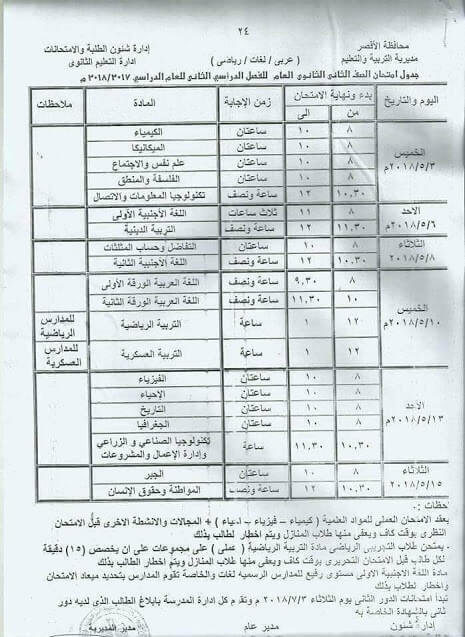 ٢٤
محافظة الأقصر
إدارة شئون الطلبة والامتحانات
مديرية التربية والتعليم
( عربى / لغات / رياضى )
ادارة التعليم الثانوى
جدول امتحان الصف الثانى الثانوى العام للفصل الدراسي الثانى للعام الدراسي ٢٠١٨/٢٠١٧ م
اليوم والتاريخ
بدء ونهاية الامتحان
من
الى
زمن الإجابة
المادة
ملاحظات
الخميس
٢٠١٨/٥/٣م
٨ ١٠ ساعتان الكيمياء
٨ ١٠ ساعتان الميكانيكا
٨ ١٠ ساعتان علم نفس والاجتماع
٨ ١٠ ساعتان الفلسفة والمنطق
١٠,٣٠ ١٢ ساعة ونصف تكنولوجيا المعلومات والاتصال
الاحد
٢٠١٨/٥/٦م
٨ ١١ ثلاث ساعات اللغة الأجنبية الأولى
١١,٣٠ ١ ساعة ونصف التربية الدينية
الثلاثاء
٢٠١٨/٥/٨م
٨ ١٠ ساعتان التفاضل وحساب المثلثات
١٠,٣٠ ١٢ ساعة ونصف اللغة الأجنبية الثانية
الخميس
٢٠١٨/٥/١٠م
٨ ٩,٣٠ ساعة ونصف اللغة العربية الورقة الأولى
١٠ ١١,٣٠ ساعة ونصف اللغة العربية الورقة الثانية
١٢ ١ ساعة التربية الرياضية للمدارس الرياضية
١٢ ١ ساعة التربية العسكرية للمدارس العسكرية
الأحد
٢٠١٨/٥/١٣م
٨ ١٠ ساعتان الفيزياء
٨ ١٠ ساعتان الإحياء
٨ ١٠ ساعتان التاريخ
٨ ١٠ ساعتان الجغرافيا
١٠,٣٠ ١١,٣٠ ساعة تكنولوجيا الصناعي و الزراعي
وإدارة الإعمال والمشروعات
الثلاثاء
٢٠١٨/٥/١٥م
٨ ١٠ ساعتان الجبر
١٠,٣٠ ١٢ ساعة ونصف المواطنة وحقوق الإنسان
حظات :-
يعقد الامتحان العملى للمواد العلمية ( كيمياء – فيزياء – احياء ) + المجالات والانشطة الاخرى قبل الامتحان
النظرى بوقت كاف ويعفى منها طلاب المنازل ويتم اخطار لطالب بذلك
يمتحن طلاب التجريبى الرياضى مادة التربية الرياضية ( عملى ) على مجموعات على ان يخصص (١٥) دقيقة
لكل طالب قبل الامتحان التحريرى بوقت كاف ويعفى منها طلاب المنازل ويتم اخطار الطالب بذلك
مادة اللغة الاجنبية الاولى مستوى رفيع للمدارس الرسمية لغات والخاصة تقوم المدارس بتحديد ميعاد الامتحان
واخطار لطلاب بذلك
تبدأ امتحانات الدور الثانى يوم الثلاثاء ٢٠١٨/٧/٣م وتقوم كل إدارة المدرسة بإبلاغ الطالب الذى لديه دور
ثانى بالشهادة الخاصة به
إدارة شئون
مدير عام
مدير المديرية